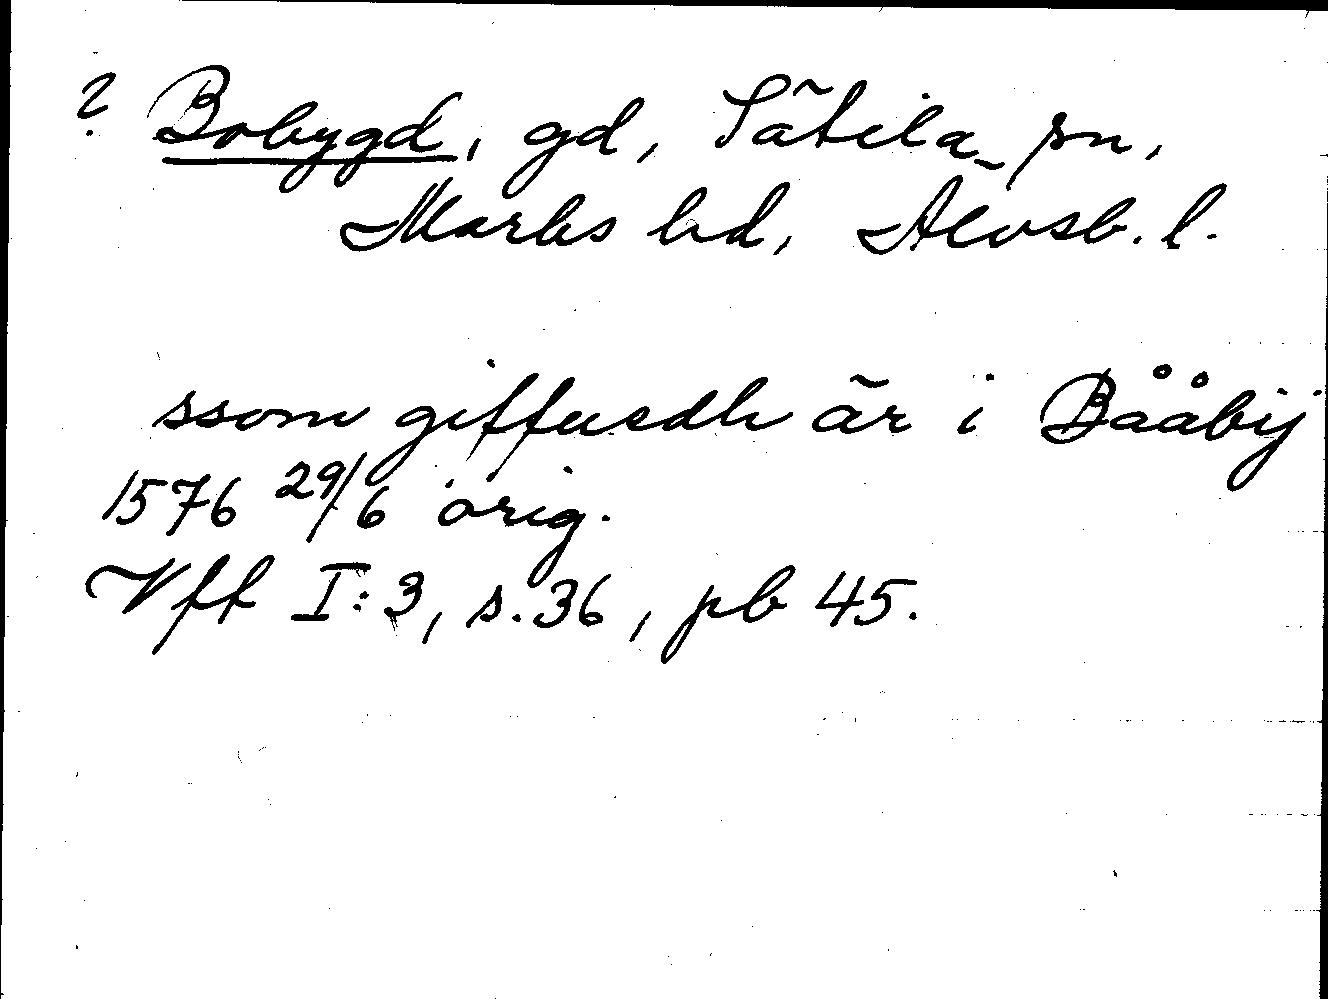 ? Bobygd, gd, Sätila sn,
Marks hd, Älvsb. l.
ssom giffuedh är i Bååbij
1576 29/6 orig.
Vff I:3, s. 36, pb 45.